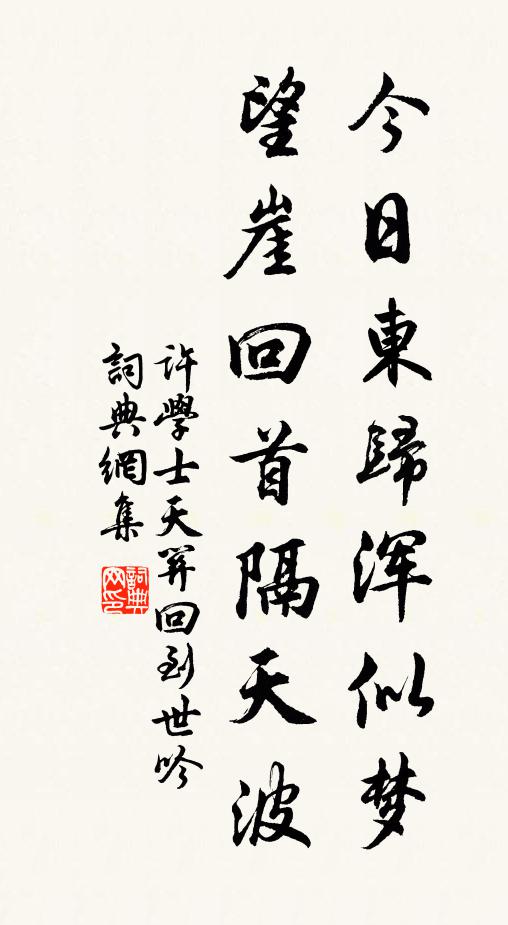 今日東歸浑似梦
望崖回首隔天波
许學士天筭回到世吟
詞典網集
詞典网印